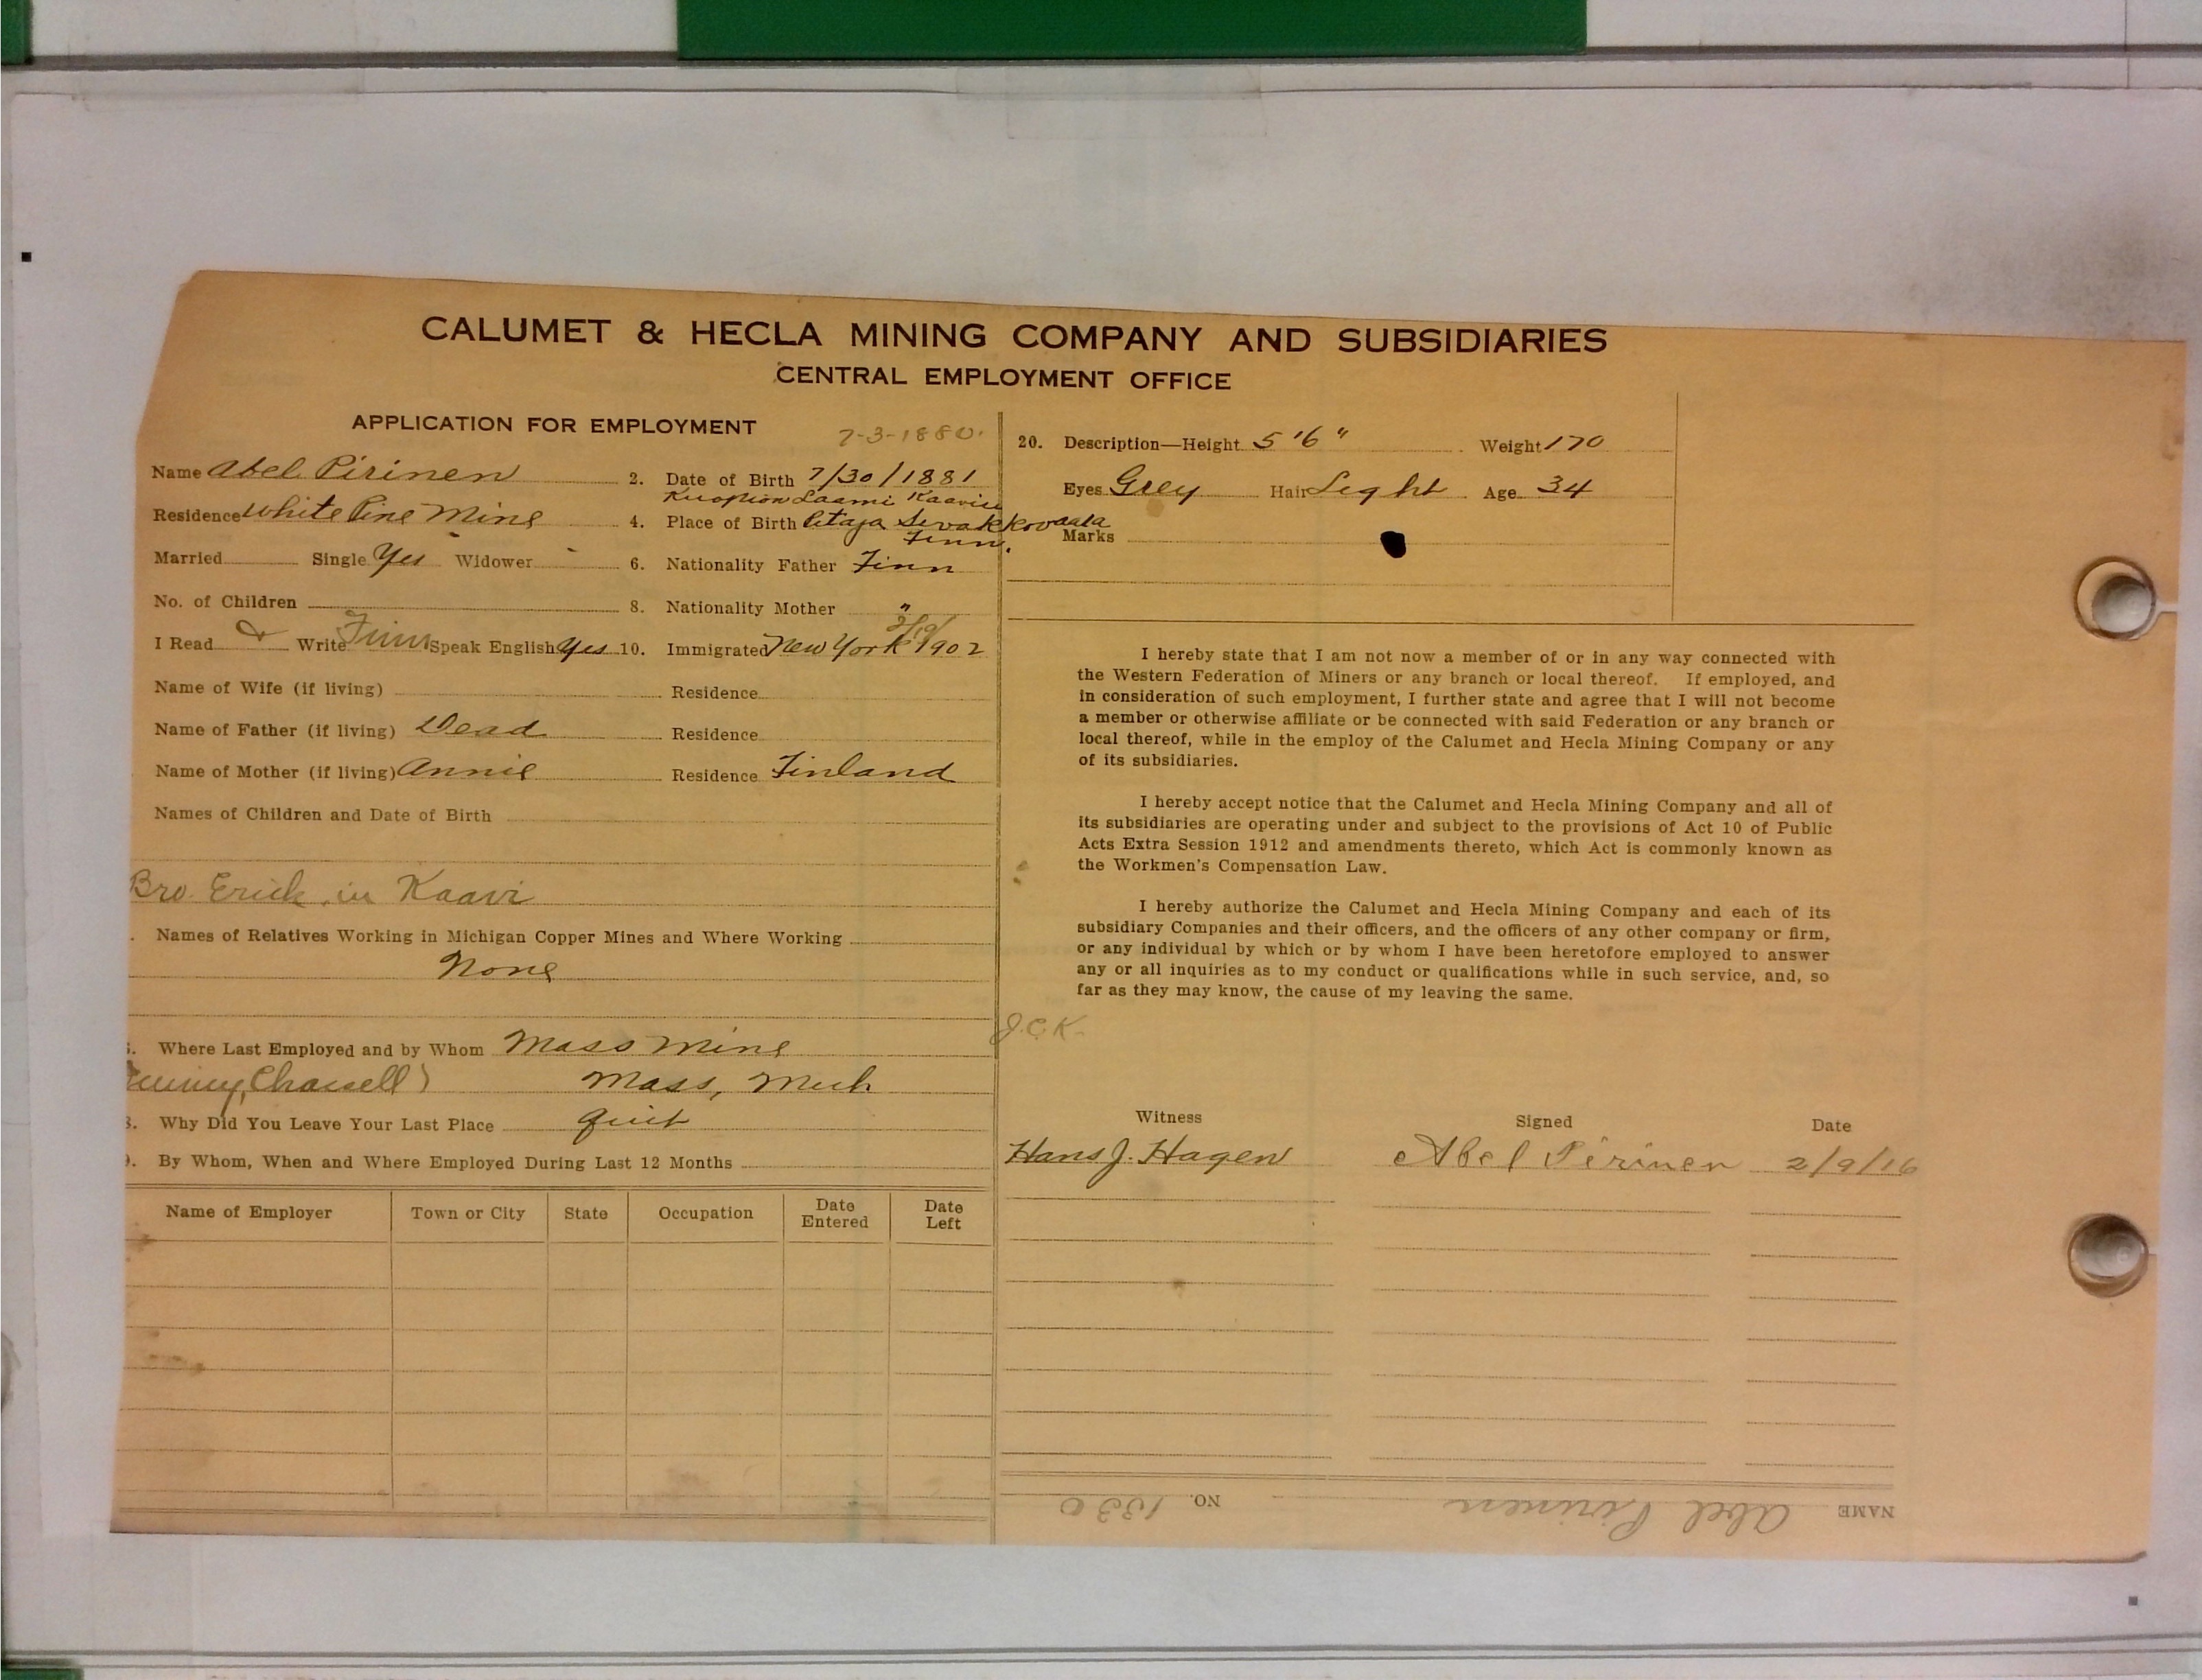 CALUMET & HECLA MINING COMPANY AND SUBSIDIARIES
CENTRAL EMPLOYMENT OFFICE
APPLICATION FOR EMPLOYMENT
7-3-1880.
Name Abel Pirinen 2. Date of Birth 7/30/1881
Kuopion Laani Kaavin
Residence White Pine Mine 4. Place of Birth Pitaja Sivakkovaara
Finn.
Married Single Yes Widower 6. Nationality Father Finn
No. of Children 8. Nationality Mother "
I Read & Write Finn Speak English Yes 10. Immigrated New York 1902
Name of Wife (if living) Residence
Name of Father (if living) Dead Residence
Name of Mother (if living) Annie Residence Finland
Names of Children and Date of Birth
Bro. Erick in Kaavi
. Names of Relatives Working in Michigan Copper Mines and Where Working
None
Where Last Employed and by Whom Mass Mine
Chassell) Mass, Mich
Why Did You Leave Your Last Place quit
By Whom, When and Where Employed During Last 12 Months
Name of Employer Town or City State Occupation Date Entered Date Left
20. Description—Height 5'6" Weight 170
Eyes Grey Hair Light Age 34
Marks
I hereby state that I am not now a member of or in any way connected with
the Western Federation of Miners or any branch or local thereof. If employed, and
in consideration of such employment, I further state and agree that I will not become
a member or otherwise affiliate or be connected with said Federation or any branch or
local thereof, while in the employ of the Calumet and Hecla Mining Company or any
of its subsidiaries.
I hereby accept notice that the Calumet and Hecla Mining Company and all of
its subsidiaries are operating under and subject to the provisions of Act 10 of Public
Acts Extra Session 1912 and amendments thereto, which Act is commonly known as
the Workmen's Compensation Law.
I hereby authorize the Calumet and Hecla Mining Company and each of its
subsidiary Companies and their officers, and the officers of any other company or firm,
or any individual by which or by whom I have been heretofore employed to answer
any or all inquiries as to my conduct or qualifications while in such service, and, so
far as they may know, the cause of my leaving the same.
J.C.K.
Witness Signed Date
Hans J. Hagen Abel Pirinen 2/9/16
NAME Abel Pirinen NO. 1330